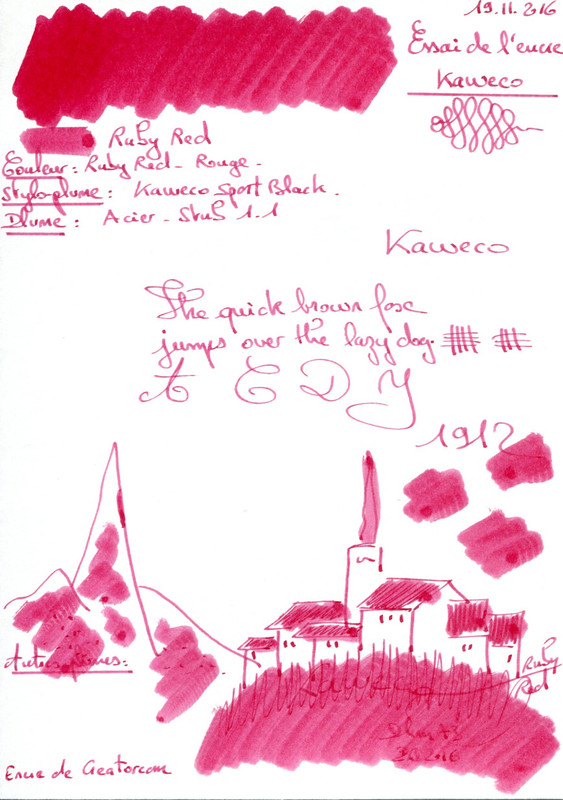 19.11.2016
Essai de l'encre
Kaweco
Ruby Red
Couleur : Ruby Red - Rouge.
Stylo-plume : Kaweco Sport Black.
Plume : Acier - Stub 1.1
Kaweco
The quick brown fox
jumps over the lazy dog.
A C D Y
1912
Autres plumes :
Kaweco
Ruby
Red
2016
Encre de